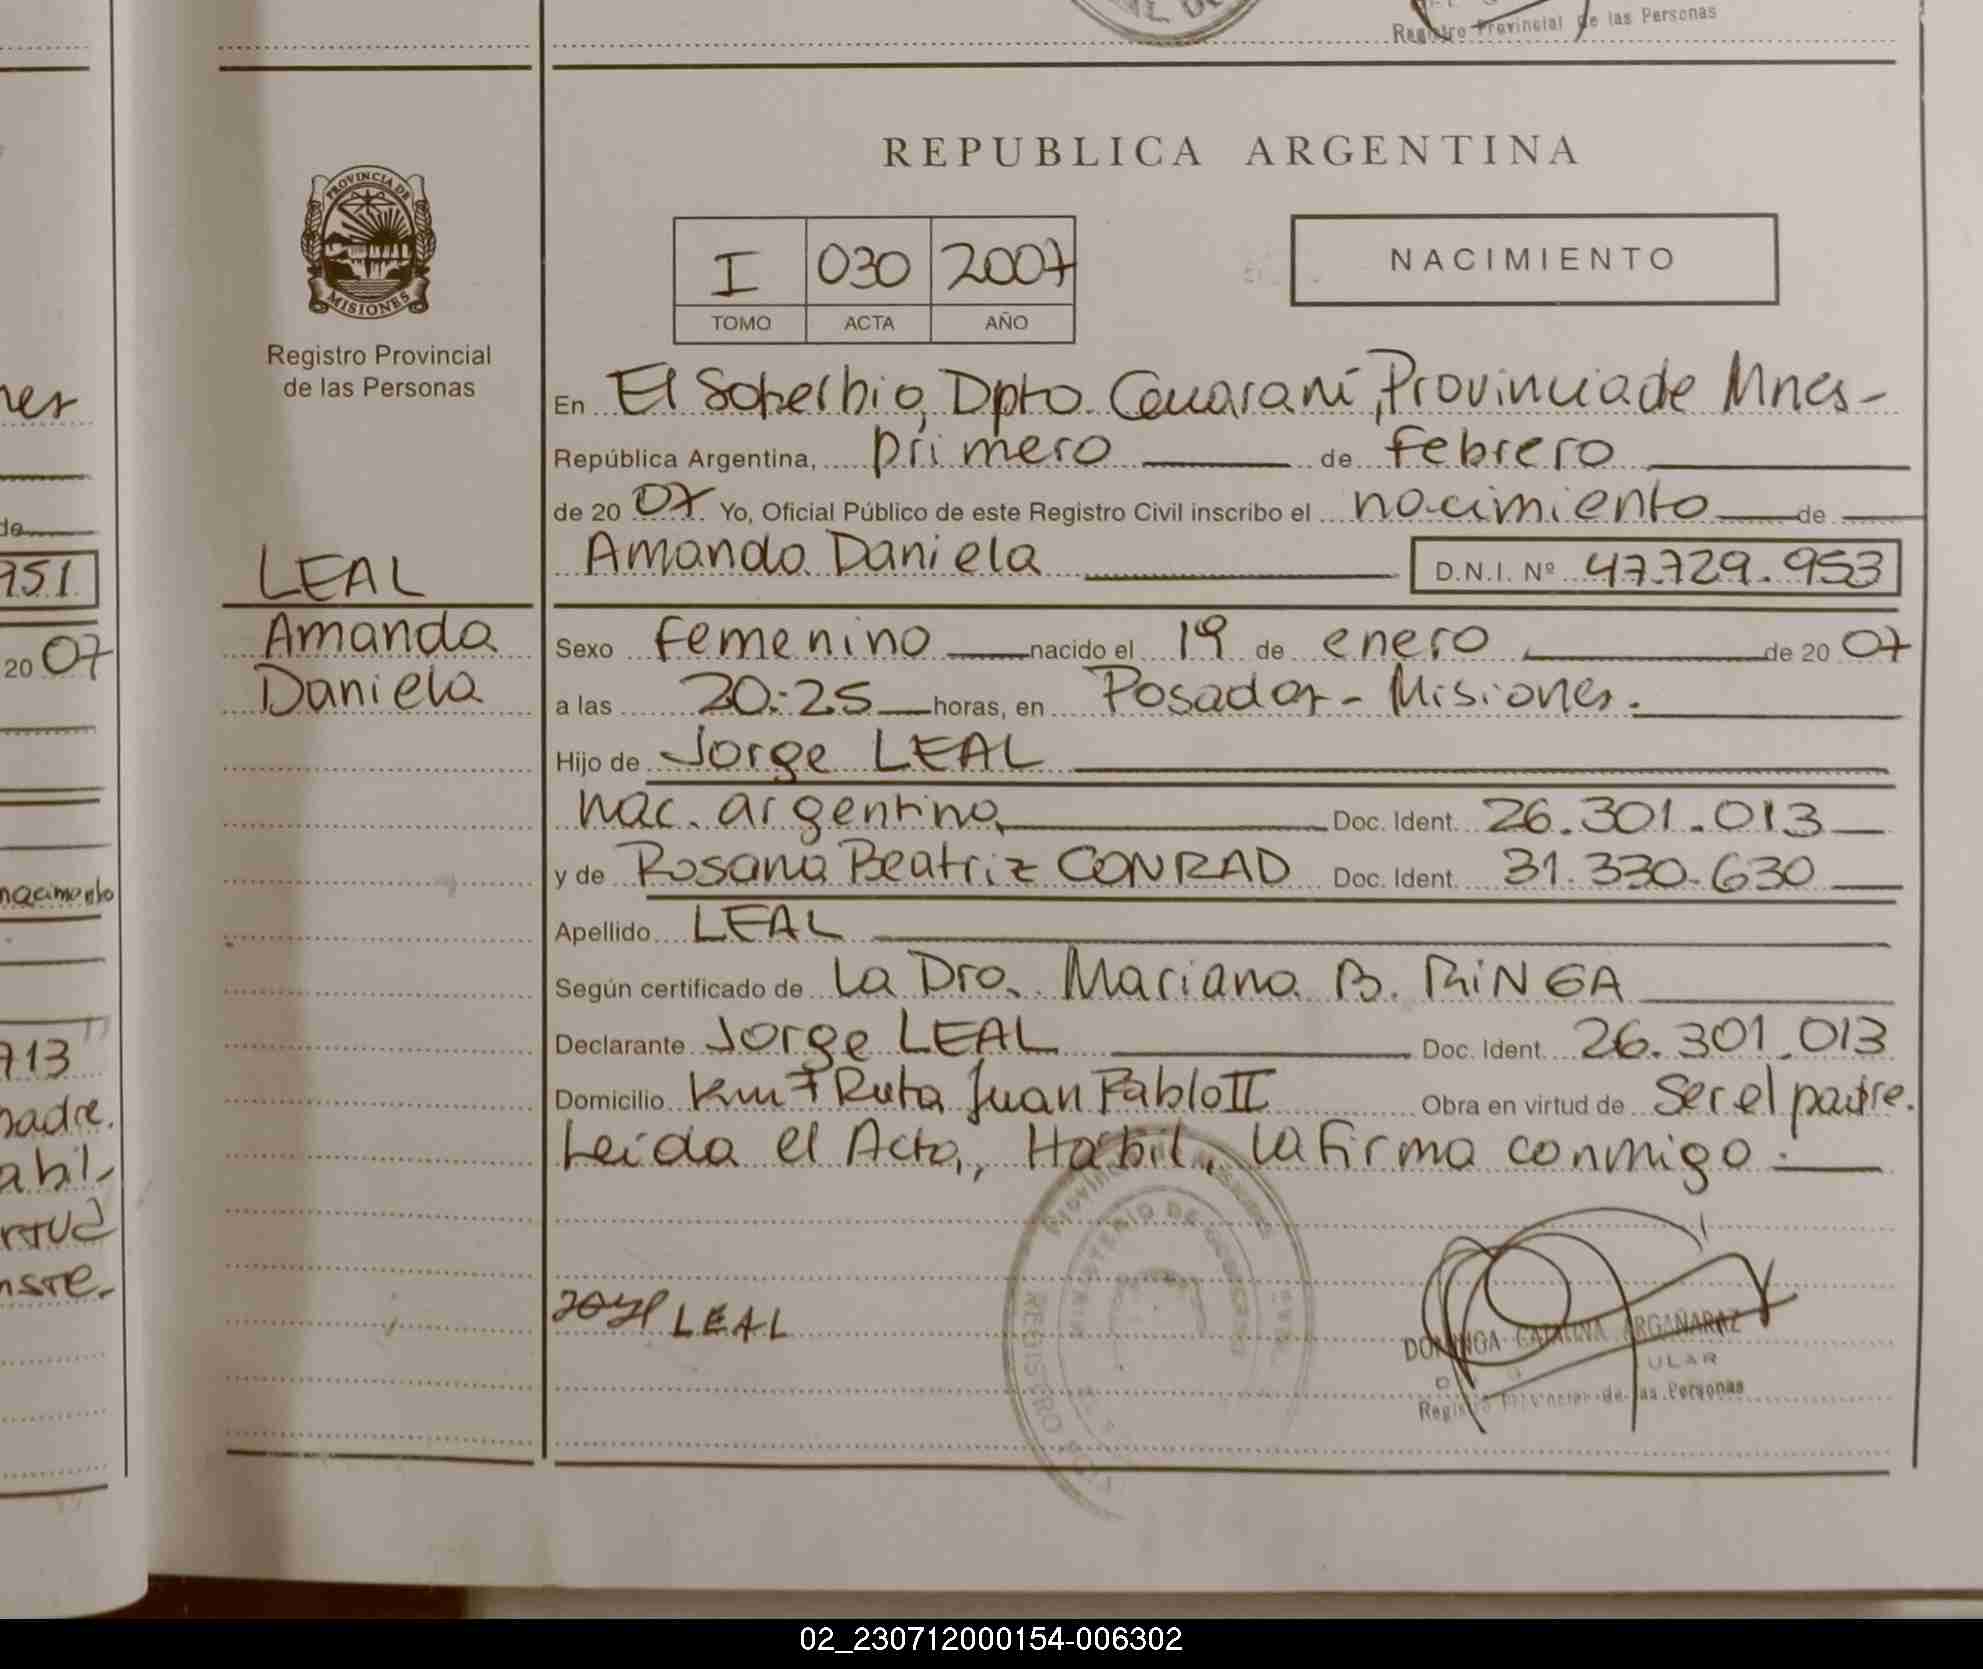 Registro Provincial de las Personas
REPUBLICA ARGENTINA
PROVINCIA DE
MISIONES
Registro Provincial
de las Personas
I 030 2007
TOMO ACTA AÑO
NACIMIENTO
En El Soberbio, Dpto. Guaraní, Provincia de Mnes-
República Argentina, primero de febrero
de 20 07 Yo, Oficial Público de este Registro Civil inscribo el nacimiento de
LEAL
Amanda Daniela D.N.I. Nº 47.729.953
Amanda
Daniela
Sexo femenino nacido el 19 de enero de 20 07
a las 20:25 horas, en Posadas - Misiones.
Hijo de Jorge LEAL
nac. argentino, Doc. Ident. 26.301.013
y de Rosana Beatriz CONRAD Doc. Ident. 31.330.630
Apellido LEAL
Según certificado de La Dra. Mariana B. RINGA
Declarante Jorge LEAL Doc. Ident. 26.301.013
Domicilio Km 7 Ruta Juan Pablo II Obra en virtud de Ser el padre.
Leída el Acta, Habil, la firma conmigo.
Jorge LEAL
MINISTERIO DE GOBIERNO
REGISTRO
DOMINGA CATALINA ARGAÑARAZ
Registro Provincial de las Personas
951
20 07
nacimento
713
padre.
02_230712000154-006302